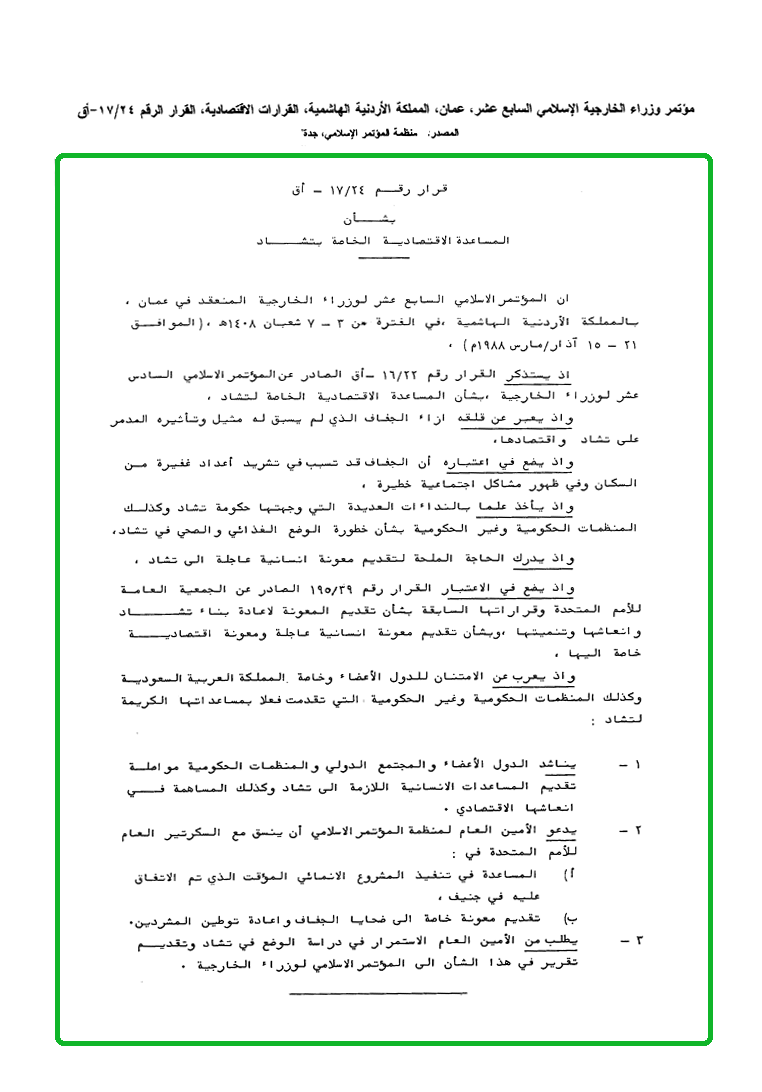 مؤتمر وزراء الخارجية الإسلامي السابع عشر، عمان، المملكة الأردنية الهاشمية، القرارات الاقتصادية، القرار الرقم ١٧/٢٤-أق
المصدر: منظمة المؤتمر الإسلامي، جدة"
قرار رقم ١٧/٢٤ - أق
بشأن
المساعدة الاقتصادية الخاصة بتشاد
ان المؤتمر الاسلامي السابع عشر لوزراء الخارجية المنعقد في عمان ،
بالمملكة الأردنية الهاشمية ،في الفترة من ٣ - ٧ شعبان ١٤٠٨هـ ،(الموافق
٢١ - ١٥ آذار/مارس ١٩٨٨م) ،
اذ يستذكر القرار رقم ١٦/٢٢ -أق الصادر عن المؤتمر الاسلامي السادس
عشر لوزراء الخارجية ،بشأن المساعدة الاقتصادية الخاصة لتشاد ،
واذ يعبر عن قلقه ازاء الجفاف الذي لم يسبق له مثيل وتأثيره المدمر
على تشاد واقتصادها،
واذ يضع في اعتباره أن الجفاف قد تسبب في تشريد أعداد غفيرة من
السكان وفي ظهور مشاكل اجتماعية خطيرة ،
واذ يأخذ علما بالنداءات العديدة التي وجهتها حكومة تشاد وكذلك
المنظمات الحكومية وغير الحكومية بشأن خطورة الوضع الغذائي والصحي في تشاد،
واذ يدرك الحاجة الملحة لتقديم معونة انسانية عاجلة الى تشاد ،
واذ يضع في الاعتبار القرار رقم ١٩٥/٣٩ الصادر عن الجمعية العامة
للأمم المتحدة وقراراتها السابقة بشأن تقديم المعونة لاعادة بناء تشاد
وانعاشها وتنميتها ،وبشأن تقديم معونة انسانية عاجلة ومعونة اقتصادية
خاصة اليها ،
واذ يعرب عن الامتنان للدول الأعضاء وخاصة المملكة العربية السعودية
وكذلك المنظمات الحكومية وغير الحكومية التي تقدمت فعلا بمساعداتها الكريمة
لتشاد :
١ - يناشد الدول الأعضاء والمجتمع الدولي والمنظمات الحكومية مواصلة
تقديم المساعدات الانسانية اللازمة الى تشاد وكذلك المساهمة في
انعاشها الاقتصادي .
٢ - يدعو الأمين العام لمنظمة المؤتمر الاسلامي أن ينسق مع السكرتير العام
للأمم المتحدة في :
أ) المساعدة في تنفيذ المشروع الانمائي المؤقت الذي تم الاتفاق
عليه في جنيف ،
ب) تقديم معونة خاصة الى ضحايا الجفاف واعادة توطين المشردين.
٣ - يطلب من الأمين العام الاستمرار في دراسة الوضع في تشاد وتقديم
تقرير في هذا الشأن الى المؤتمر الاسلامي لوزراء الخارجية .